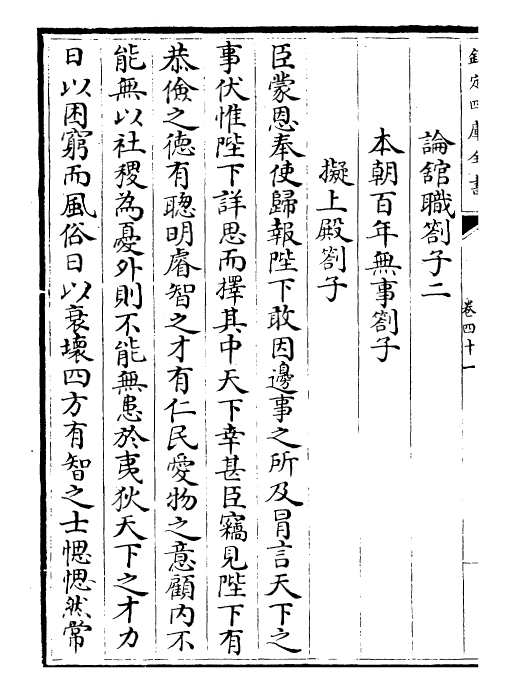 欽定四庫全書
卷四十一
論舘職劄子二
本朝百年無事劄子
擬上殿劄子
臣蒙恩奉使歸報陛下敢因邊事之所及冐言天下之
事伏惟陛下詳思而擇其中天下幸甚臣竊見陛下有
恭儉之德有聰明睿智之才有仁民愛物之意顧内不
能無以社稷為憂外則不能無患於夷狄天下之才力
日以困窮而風俗日以衰壊四方有智之士愢愢然常